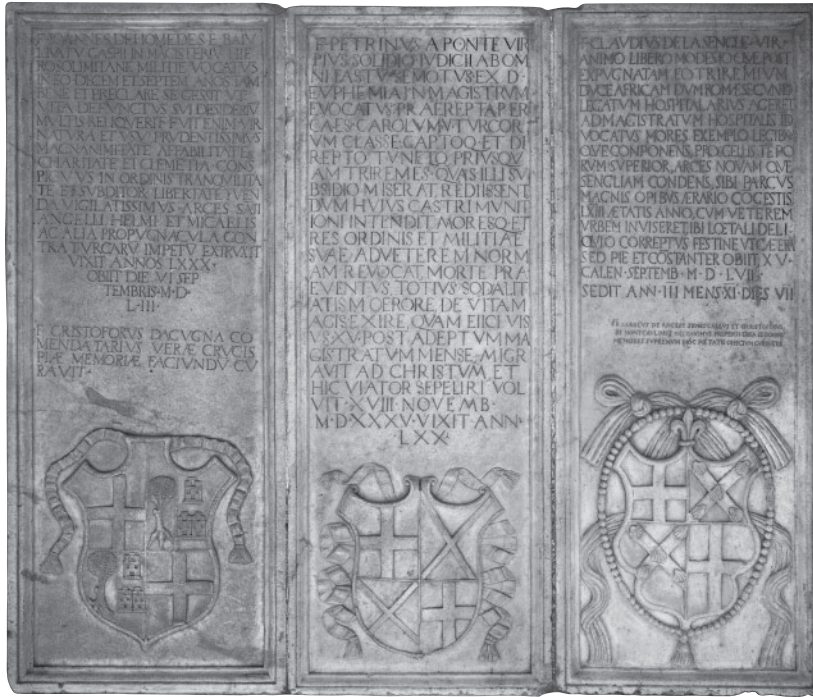 F IOANNES DE HOMEDES E BAIV
LIVATV CASPI IN MAGISTERIVM HIE
ROSOLIMITANE MILITIE VOCATVS
IN EO DECEM ET SEPTEM ANNOS TAM
BENE ET PRECLARE SE GESSIT VT
VITA DEFVNCTVS SVI DESIDERIV
MVLTIS RELIQVERIT FVIT ENIM VIR
NATVRA ET VSV PRVDENTISSIMVS
MAGNANIMITATE AFFABILITATE
CHARITATE ET CLEMETIA CONS
PICVVS IN ORDINIS TRANQVILITA
TE ET SVBDITOR LIBERTATE TVEN
DA VIGILATISSIMVS ARCES SATI
ANGELLI HELMI ET MICAELIS
AC ALIA PROPVGNACVLA CON
TRA TVRCARV IMPETV EXTRVXIT
VIXIT ANNOS LXXX·
OBIIT DIE VI SEP
TEMBRIS·M·D·
L·III·
F CRISTOFORVS DACVGNA CO
MENDATARIVS VERÆ CRVCIS
PIÆ MEMORIÆ FACIVNDV CV
RAVIT
F·PETRINVS A PONTE VIR
PIVS SOLIDIQ IVDICII AB OM
NI FASTV SEMOTVS EX D·
EVPHEMIA IN MAGISTRVM
EVOCATVS PRAEREPTA PER
CAES·CAROLVM V TVRCOR
VM CLASSE CAPTOQ·ET DI
REPTO TVNETO PRIVSQV
AM TRIREMES·QVAS ILLI SV
BSIDIO MISERAT REDIISSENT
DVM HVIVS CASTRI MVNIT
IONI INTENDIT MORESQ·ET
RES ORDINIS ET MILITIAE
SVAE AD VETEREM NORM
AM REVOCAT, MORTE PRA
EVENTVS, TOTIVS SODALIT
ATIS MOERORE, DE VITAM
AGIS EXIRE, QVAM EIICI VIS
VS XV·POST ADEPTVM MA
GISTRATVM MENSE, MIGR
AVIT AD CHRISTVM, ET
HIC VIATOR SEPELIRI VOL
VIT·XVIII·NOVEMB·
M·D·XXXV·VIXIT ANN·
LXX·
F·CLAVDIVS DE LA SENGLE·VIR·
ANIMO LIBERO MODESTO CVM, POST
EXPVGNATAM EO TRIREMIVM
DVCE AFRICAM DVM ROMÆ SECVND
LEGATVM HOSPITALARIVS AGERET
AD MAGISTRATVM HOSPITALIS ID
VOCATVS MORES EXEMPLO LEGIBV
QVE COMPONENS, PROCELLIS TEPO
RVM SVPERIOR, ARCES NOVAM QVE
SENGLIAM CONDENS, SIBI PARCVS
MAGNIS OPIBVS ÆRARIO COGESTIS
LXIII ÆTATIS ANNO, CVM VETEREM
VRBEM INVISERET, IBI LŒTALI DELI
QVIO CORREPTVS FESTINE VTCÆTERA
SED PIE ET COSTANTER OBIIT X V·
CALEN·SEPTEMB·M·D·LVII·
SEDIT ANN·III MENS·XI·DIES VII